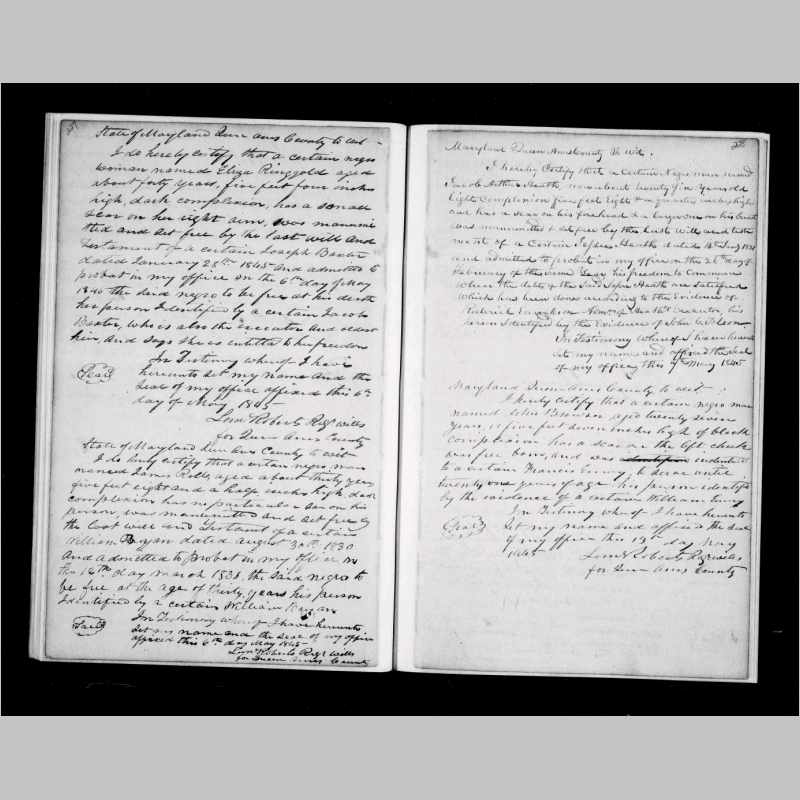 State of Maryland Queen Anns County to wit
I do hereby certify that a certain negro
woman named Eliza Ringgold aged
about forty years, five feet four inches
high, dark complexion, has a small
scar on her right arm, was manumi
tted and set free by the last will and
testament of a certain Joseph Baxter
dated January 28th 1845 and admitted to
probat in my office on the 6th day of May
the said negro to be free at his death
her person Identified by a certain Jacob
Baxter, who is also the executor and oldest
heir, and says she is entitled to her freedom
In Testimony whereof I have
hereunto set my name and the
Seal
seal of my office affixed this 6th
day of May 1845
Roberts Regr wills
for Queen Anns County
State of Maryland Queen Anns County to wit
I do hereby certify that a certain negro man
named James aged about thirty years
five feet eight and a half inches high, dark
complexion has no particular scar on his
person, was manumitted and set free by
the last will and testament of a certain
William Bryan dated august 30th 1830
And admitted to probat in my office on
the 14th day march 1831, the said negro to
be free at the age of thirty years his person
Identified by a certain William Bryan
In Testimony whereof I have hereunto
Seal
set my name and the seal of my office
affixed this 6th day May 1845
Roberts Regr Wills
for Queen Anns County
Maryland Queen Anns County to wit.
I hereby Certify that a Certain Negro man named
Jacob Heath, now about twenty years old
light Complexion five feet eight & a quarter inches high
and has a scar on his forehead & a large one on his breast
was manumitted & set free by the last Will and testa
ment of a Certain Heath dated 1831
and admitted to probat in my office on the 26th day of
February of the same Year his freedom to Commence
when the debts of the said Heath are Satisfied
Which has been done according to the Evidence of
of Heath Executor, his
person Identified by the Evidence of John
In Testimony whereof I have hereunto
set my name and affixed the seal
of my office this May 1845
Maryland Queen Anns County to wit:
I hereby certify that a certain negro man
named John Brown aged twenty seven
years, is five feet seven inches high of black
complexion has a scar on the left cheek
was free born, and was indented
to a certain Francis to serve until
twenty one years of age his person identified
by the evidence of a certain William
In Testimony whereof I have hereunto
Seal
set my name and affixed the seal
of my office this 13th day May
1845
Roberts Regr wills
for Queen Anns County